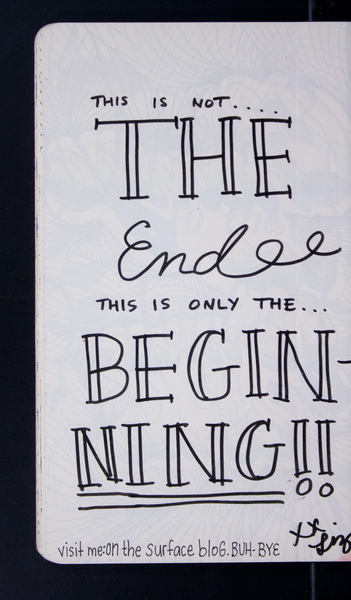 THIS IS NOT....
THE
End
THIS IS ONLY THE...
BEGIN-
NING!!
visit me:on the surface bloG.BUH-BYE